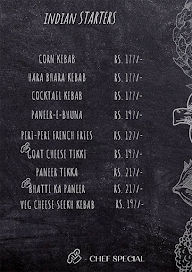 INDIAN STARTERS
CORN KEBAB RS. 177/-
HARA BHARA KEBAB RS. 177/-
COCKTAIL KEBAB RS. 177/-
PANEER-E-BHUNA RS. 197/-
PERI-PERI FRENCH FRIES RS. 127/-
GOAT CHEESE TIKKI RS. 197/-
PANEER TIKKA RS. 217/-
BHATTI KA PANEER RS. 217/-
VEG CHEESE SEEKH KEBAB RS. 197/-
- CHEF SPECIAL